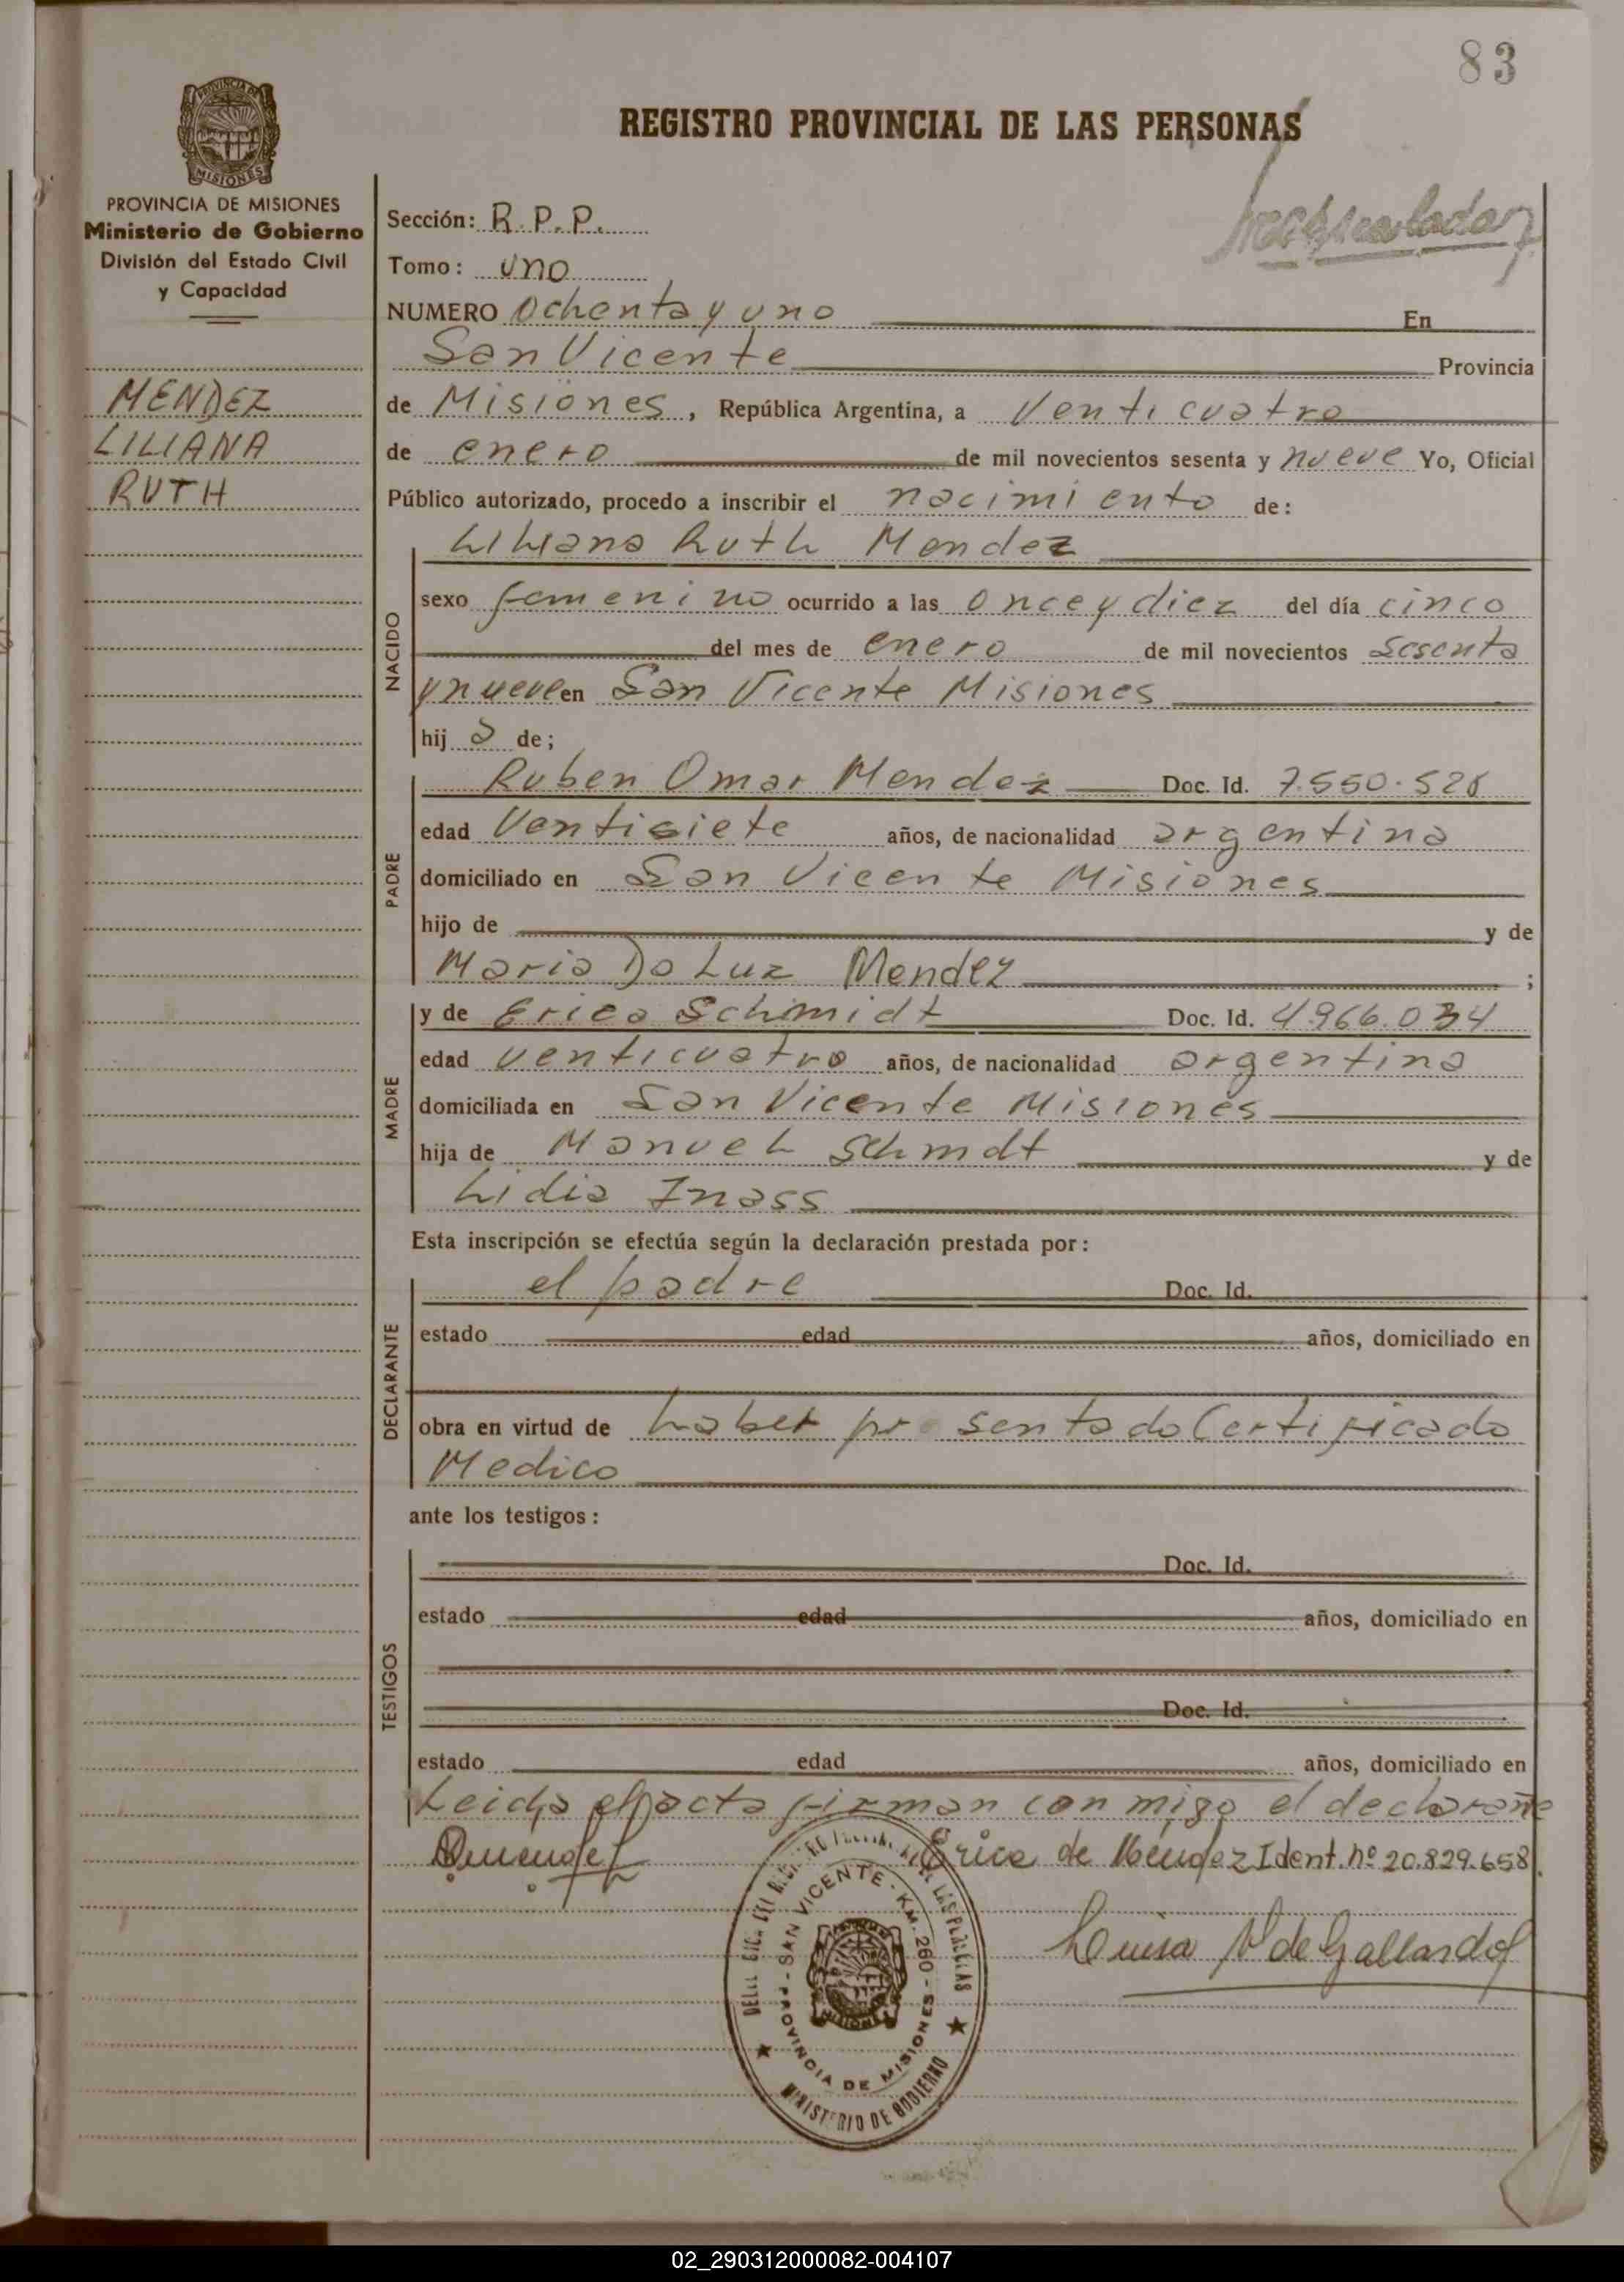 83
REGISTRO PROVINCIAL DE LAS PERSONAS
PROVINCIA DE MISIONES
Ministerio de Gobierno
División del Estado Civil
y Capacidad
MENDEZ
LILIANA
RUTH
Sección: R.P.P.
Tomo: uno
NUMERO Ochenta y uno En
San Vicente Provincia
de Misiones, República Argentina, a Venticuatro
de enero de mil novecientos sesenta y nueve Yo, Oficial
Público autorizado, procedo a inscribir el nacimiento de:
NACIDO
Liliana Ruth Mendez
sexo femenino ocurrido a las Once y diez del día cinco
del mes de enero de mil novecientos sesenta
y nueve en San Vicente Misiones
hij a de;
PADRE
Ruben Omar Mendez Doc. Id. 7.550.526
edad Ventisiete años, de nacionalidad argentina
domiciliado en San Vicente Misiones
hijo de y de
Maria Da Luz Mendez ;
MADRE
y de Erica Schimidt Doc. Id. 4.966.034
edad venticuatro años, de nacionalidad argentina
domiciliada en San Vicente Misiones
hija de Manuel Schmdt y de
Lidia Inass
Esta inscripción se efectúa según la declaración prestada por:
DECLARANTE
el padre Doc. Id.
estado edad años, domiciliado en
obra en virtud de haber presentado Certificado
Medico
ante los testigos:
TESTIGOS
Doc. Id.
estado edad años, domiciliado en
Doc. Id.
estado edad años, domiciliado en
Leida el acta firman con migo el declarante
Erica de Méndez Ident. nº 20.829.658
Luisa de Gallardo
SAN VICENTE - KM. 260 - PROVINCIA DE MISIONES
MINISTERIO DE GOBIERNO
MISIONES
02_290312000082-004107